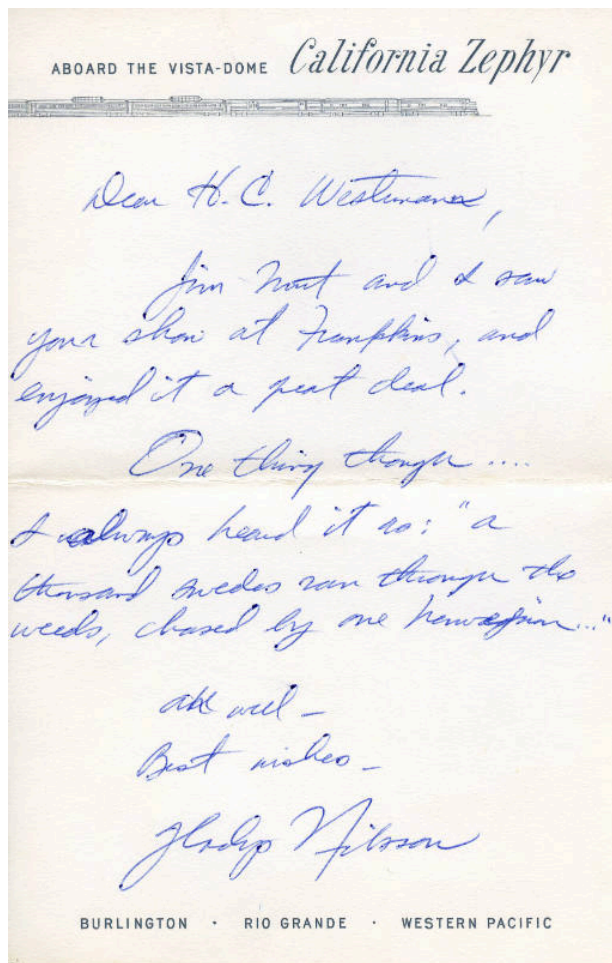 ABOARD THE VISTA-DOME California Zephyr
Dear H.C. Westermann,
Jim Nutt and I saw
your show at Frumpkins, and
enjoyed it a great deal.
One thing though....
I always heard it as: "a
thousand swedes ran through the
weeds, chased by one Norwegian..."
ah well –
Best wishes –
Gladys Nilsson
BURLINGTON · RIO GRANDE · WESTERN PACIFIC